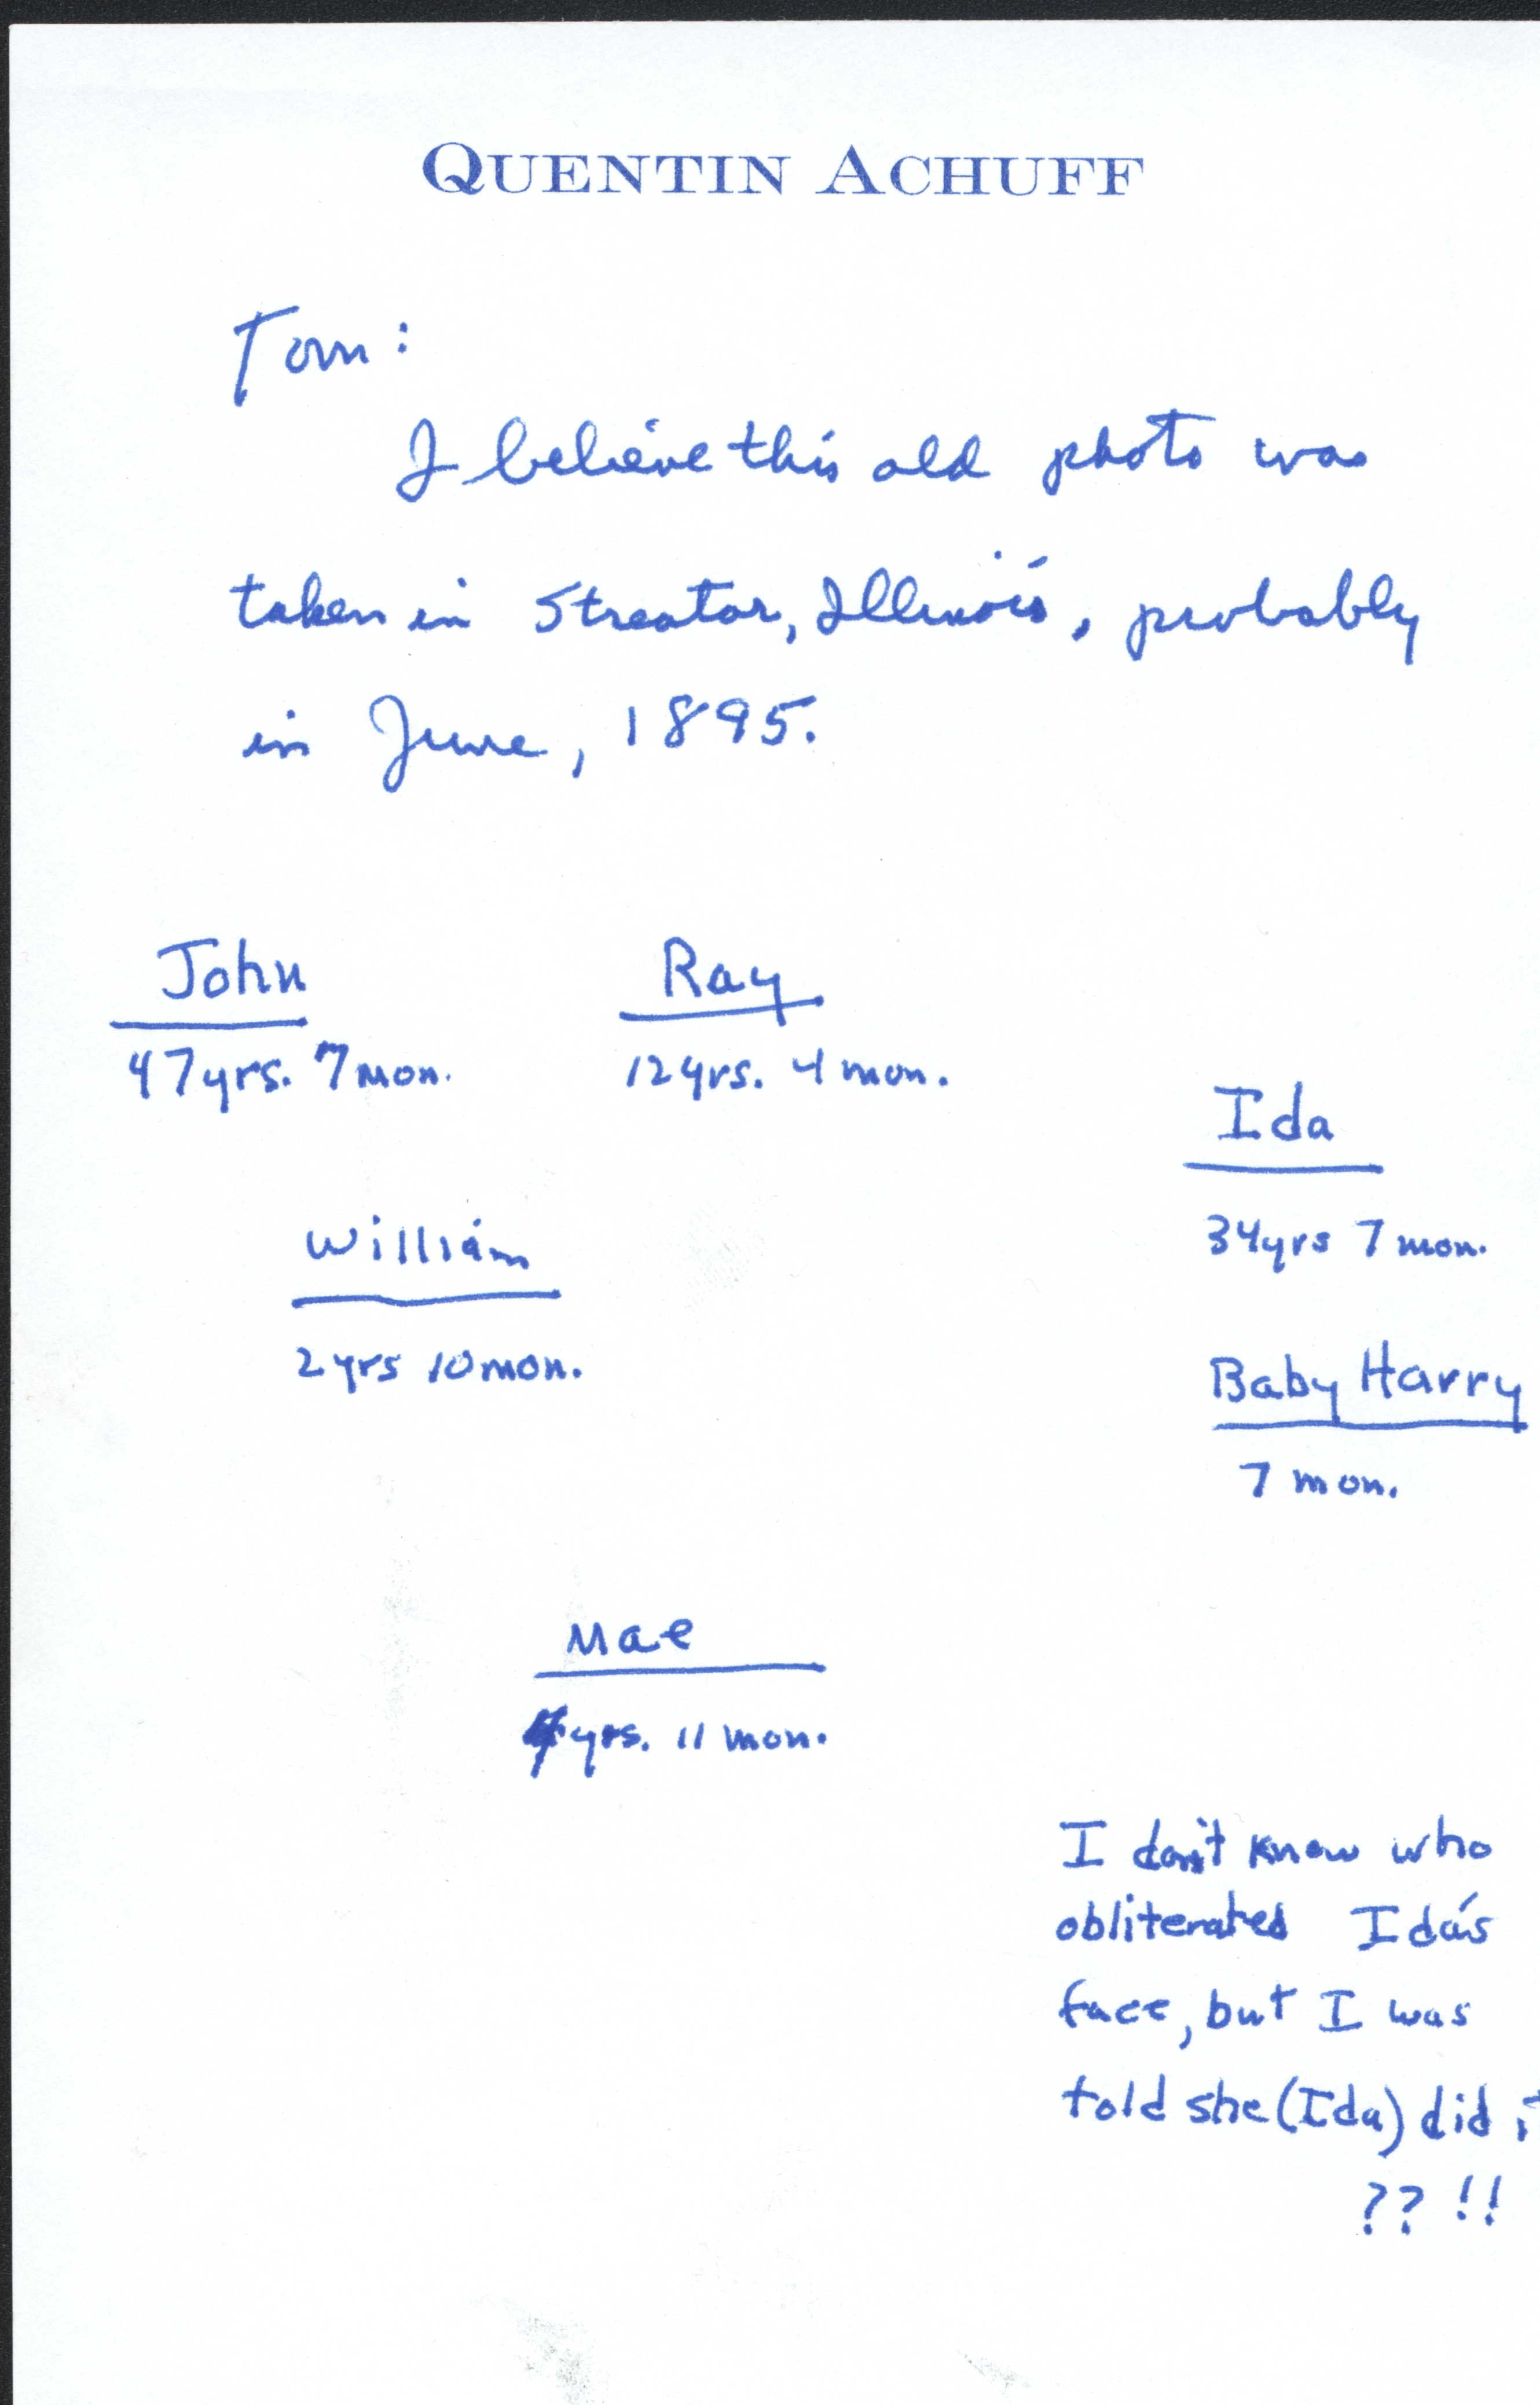 QUENTIN ACHUFF
Tom:
I believe this old photo was
taken in Streator, Illinois, probably
in June, 1895.
John
47yrs. 7mon.
Ray
12yrs. 4mon.
Ida
34yrs 7mon.
William
2yrs 10mon.
Baby Harry
7 mon.
Mae
4yrs. 11 mon.
I don't know who
obliterated Ida's
face, but I was
told she (Ida) did it
?? !!